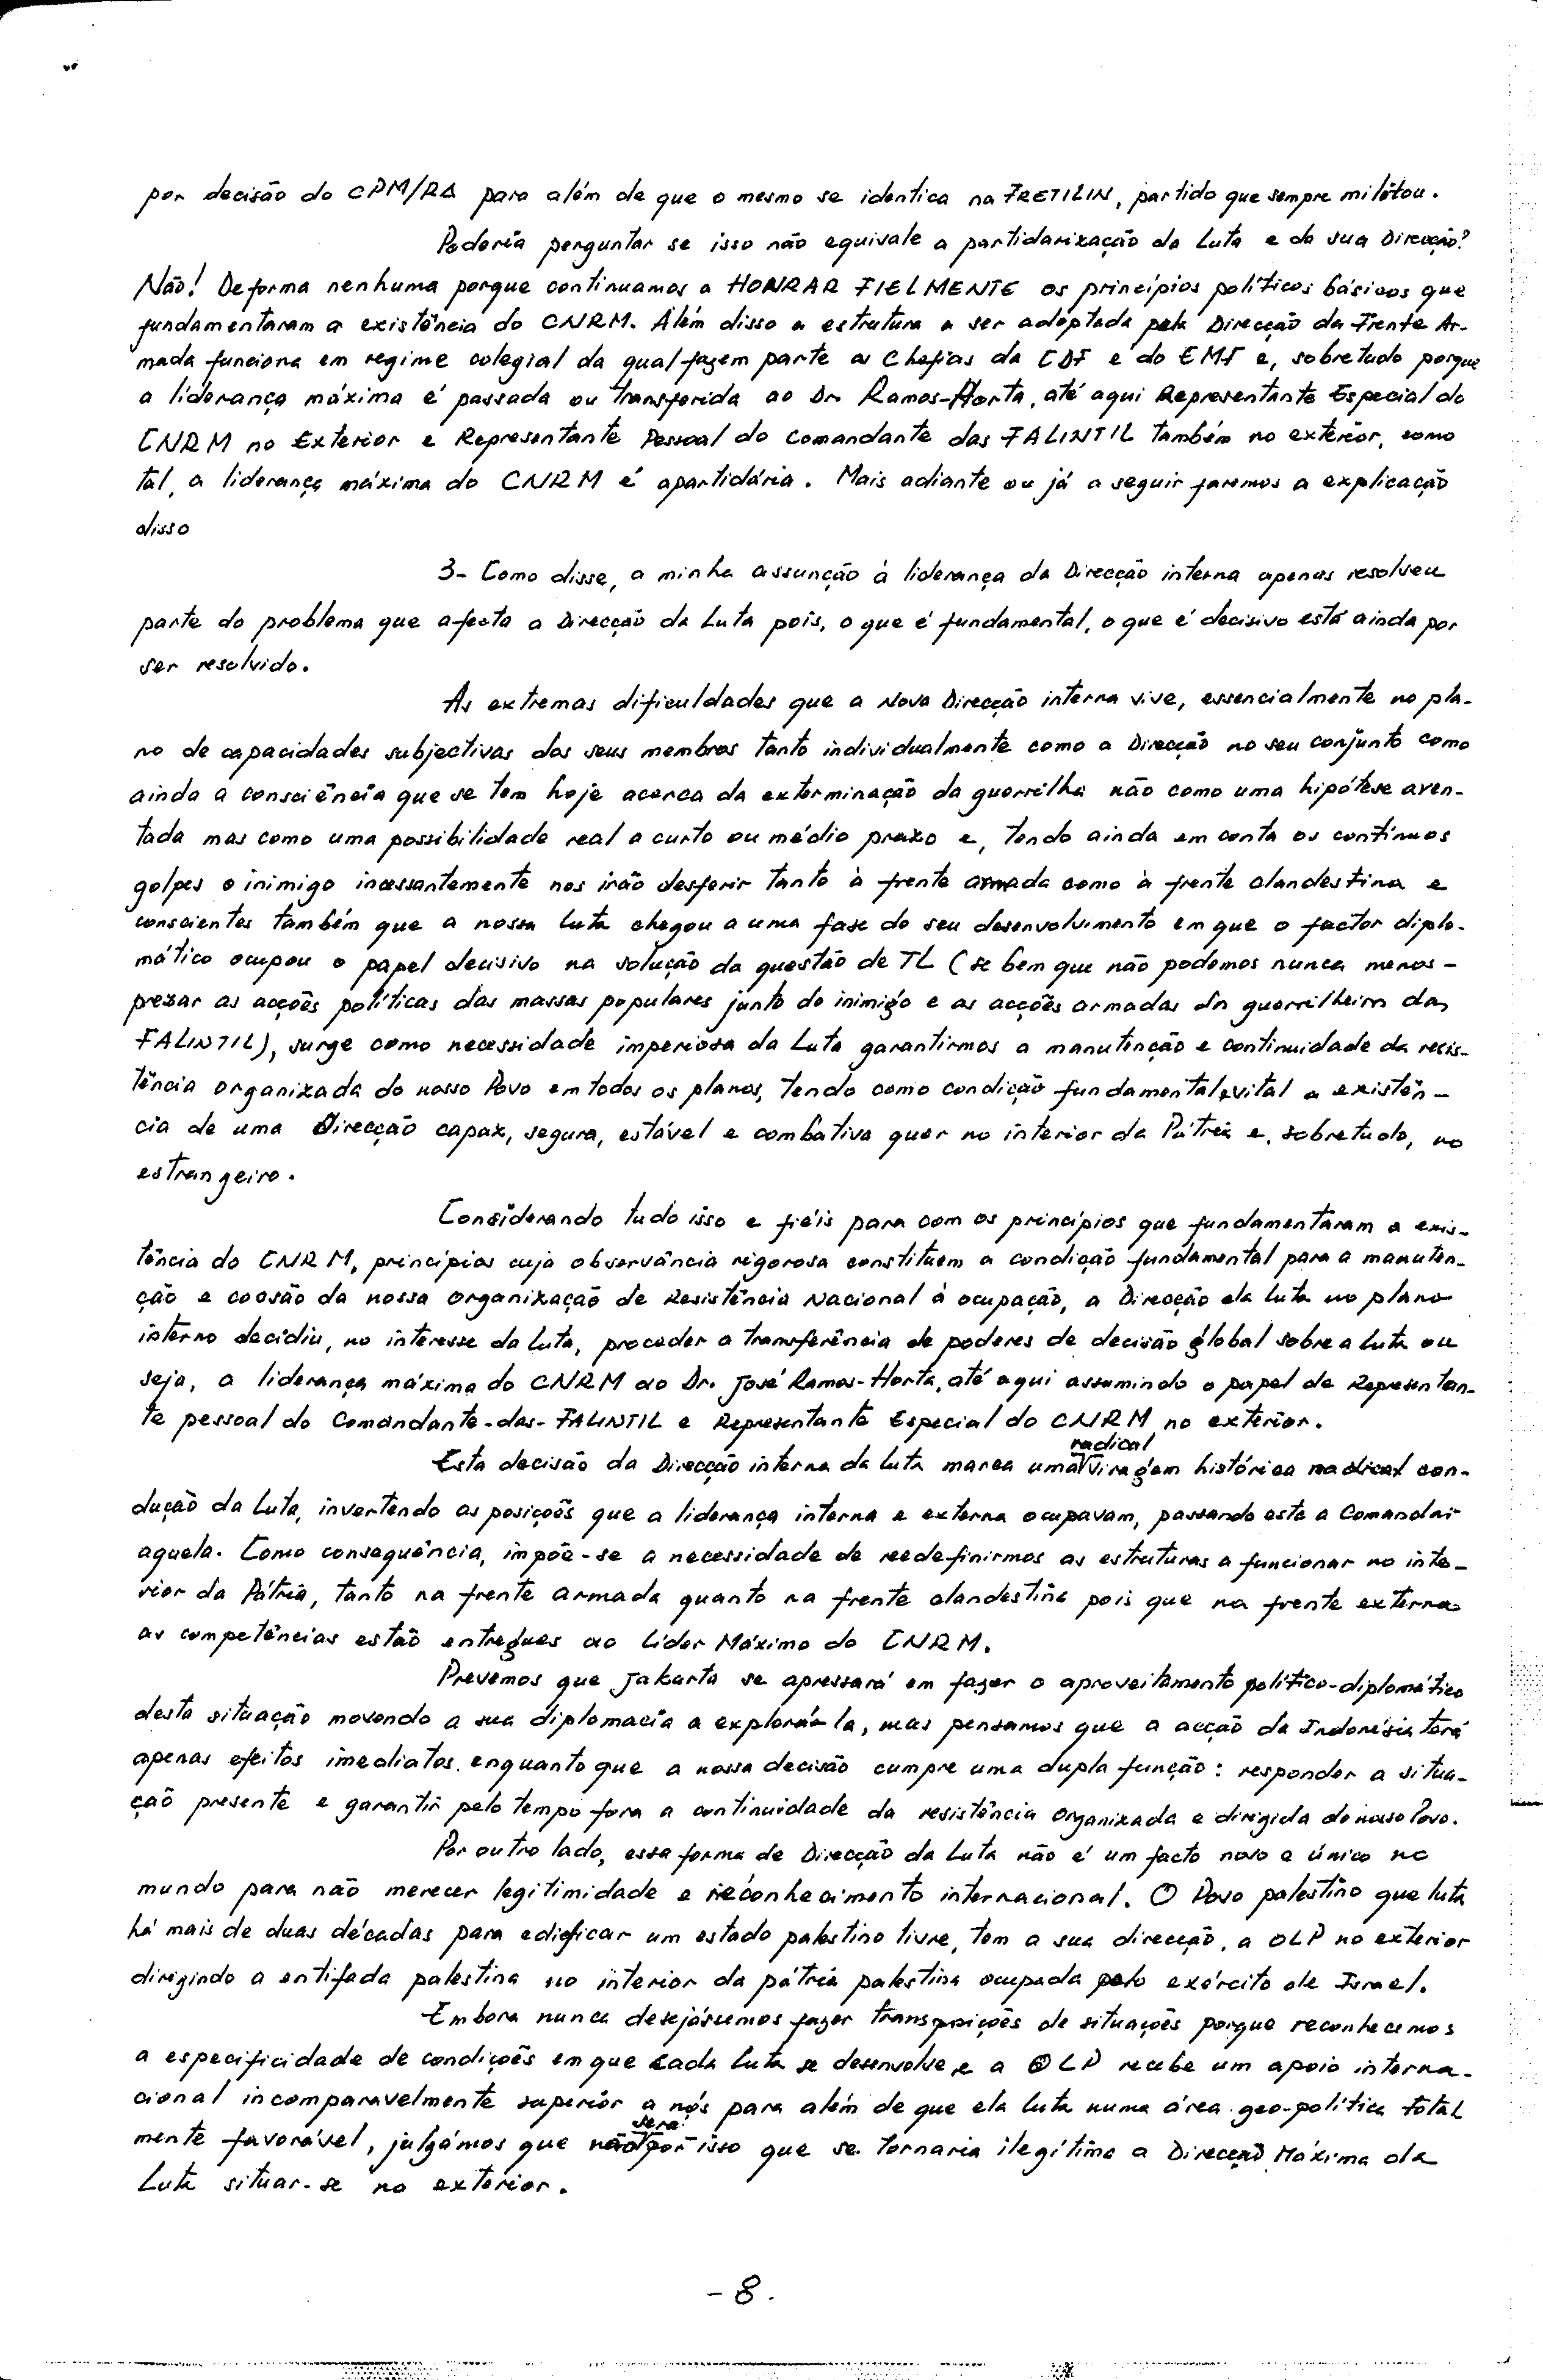 por decisão do CPM/RA para além de que o mesmo se identica na FRETILIN, partido que sempre militou.
Poderia perguntar se isso não equivale a partidarização da Luta e da sua Direcção?
Não! De forma nenhuma porque continuamos a HONRAR FIELMENTE os princípios políticos básicos que
fundamentaram a existência do CNRM. Além disso a estrutura a ser adoptada pela Direcção da Frente Ar-
mada funciona em regime colegial da qual fazem parte as Chefias da CDF e do EMF e, sobretudo porque
a liderança máxima é passada ou transferida ao Dr. Ramos-Horta, até aqui Representante Especial do
CNRM no Exterior e Representante Pessoal do Comandante das FALINTIL também no exterior, como
tal, a liderança máxima do CNRM é apartidária. Mais adiante ou já a seguir faremos a explicação
disso
3- Como disse, a minha assunção à liderança da Direcção interna apenas resolveu
parte do problema que afecta a Direcção da Luta pois, o que é fundamental, o que é decisivo está ainda por
ser resolvido.
As extremas dificuldades que a Nova Direcção interna vive, essencialmente no pla-
no de capacidades subjectivas dos seus membros tanto individualmente como a Direcção no seu conjunto como
ainda a consciência que se tem hoje acerca da exterminação da guerrilha não como uma hipótese aven-
tada mas como uma possibilidade real a curto ou médio prazo e, tendo ainda em conta os contínuos
golpes o inimigo incessantemente nos irão desferir tanto à frente armada como à frente clandestina e
conscientes também que a nossa luta chegou a uma fase do seu desenvolvimento em que o factor diplo-
mático ocupou o papel decisivo na solução da questão de TL (se bem que não podemos nunca menos-
prezar as acções políticas das massas populares junto do inimigo e as acções armadas dos guerrilheiros das
FALINTIL), surge como necessidade imperiosa da Luta garantirmos a manutenção e continuidade da resis-
tência organizada do nosso Povo em todos os planos, tendo como condição fundamental e vital a existên-
cia de uma Direcção capaz, segura, estável e combativa quer no interior da Pátria e, sobretudo, no
estrangeiro.
Considerando tudo isso e fiéis para com os princípios que fundamentaram a exis-
tência do CNRM, princípios cuja observância rigorosa constituem a condição fundamental para a manuten-
ção e coesão da nossa organização de Resistência Nacional à ocupação, a Direcção da luta no plano
interno decidiu, no interesse da luta, proceder a transferência de poderes de decisão global sobre a luta ou
seja, a liderança máxima do CNRM ao Dr. José Ramos-Horta, até aqui assumindo o papel de Representan-
te pessoal do Comandante-das-FALINTIL e Representante Especial do CNRM no exterior.
Esta decisão da Direcção interna da luta marca uma radical viragem histórica na con-
dução da Luta, invertendo as posições que a liderança interna e externa ocupavam, passando esta a Comandar
aquela. Como consequência, impõe-se a necessidade de reedefinirmos as estruturas a funcionar no inte-
rior da Pátria, tanto na frente armada quanto na frente clandestina pois que na frente externa
as competências estão entregues ao Líder Máximo do CNRM.
Prevemos que Jakarta se apressará em fazer o aproveitamento político-diplomático
desta situação movendo a sua diplomacia a explorá-la, mas pensamos que a acção da Indonésia terá
apenas efeitos imediatos enquanto que a nossa decisão cumpre uma dupla função: responder a situa-
ção presente e garantir pelo tempo fora a continuidade da resistência organizada e dirigida do nosso Povo.
Por outro lado, essa forma de Direcção da Luta não é um facto novo e único no
mundo para não merecer legitimidade e reconhecimento internacional. O Povo palestino que luta
há mais de duas décadas para edificar um estado palestino livre, tem a sua direcção, a OLP no exterior
dirigindo a entifada palestina no interior da pátria palestina ocupada pelo exército de Israel.
Embora nunca desejássemos fazer transposições de situações porque reconhecemos
a especificidade de condições em que cada luta se desenvolve e a OLP recebe um apoio interna-
cional incomparavelmente superior a nós para além de que ela luta numa área geo-política total
mente favorável, julgámos que não será por isso que se tornaria ilegítima a Direcção Máxima da
Luta situar-se no exterior.
-8.